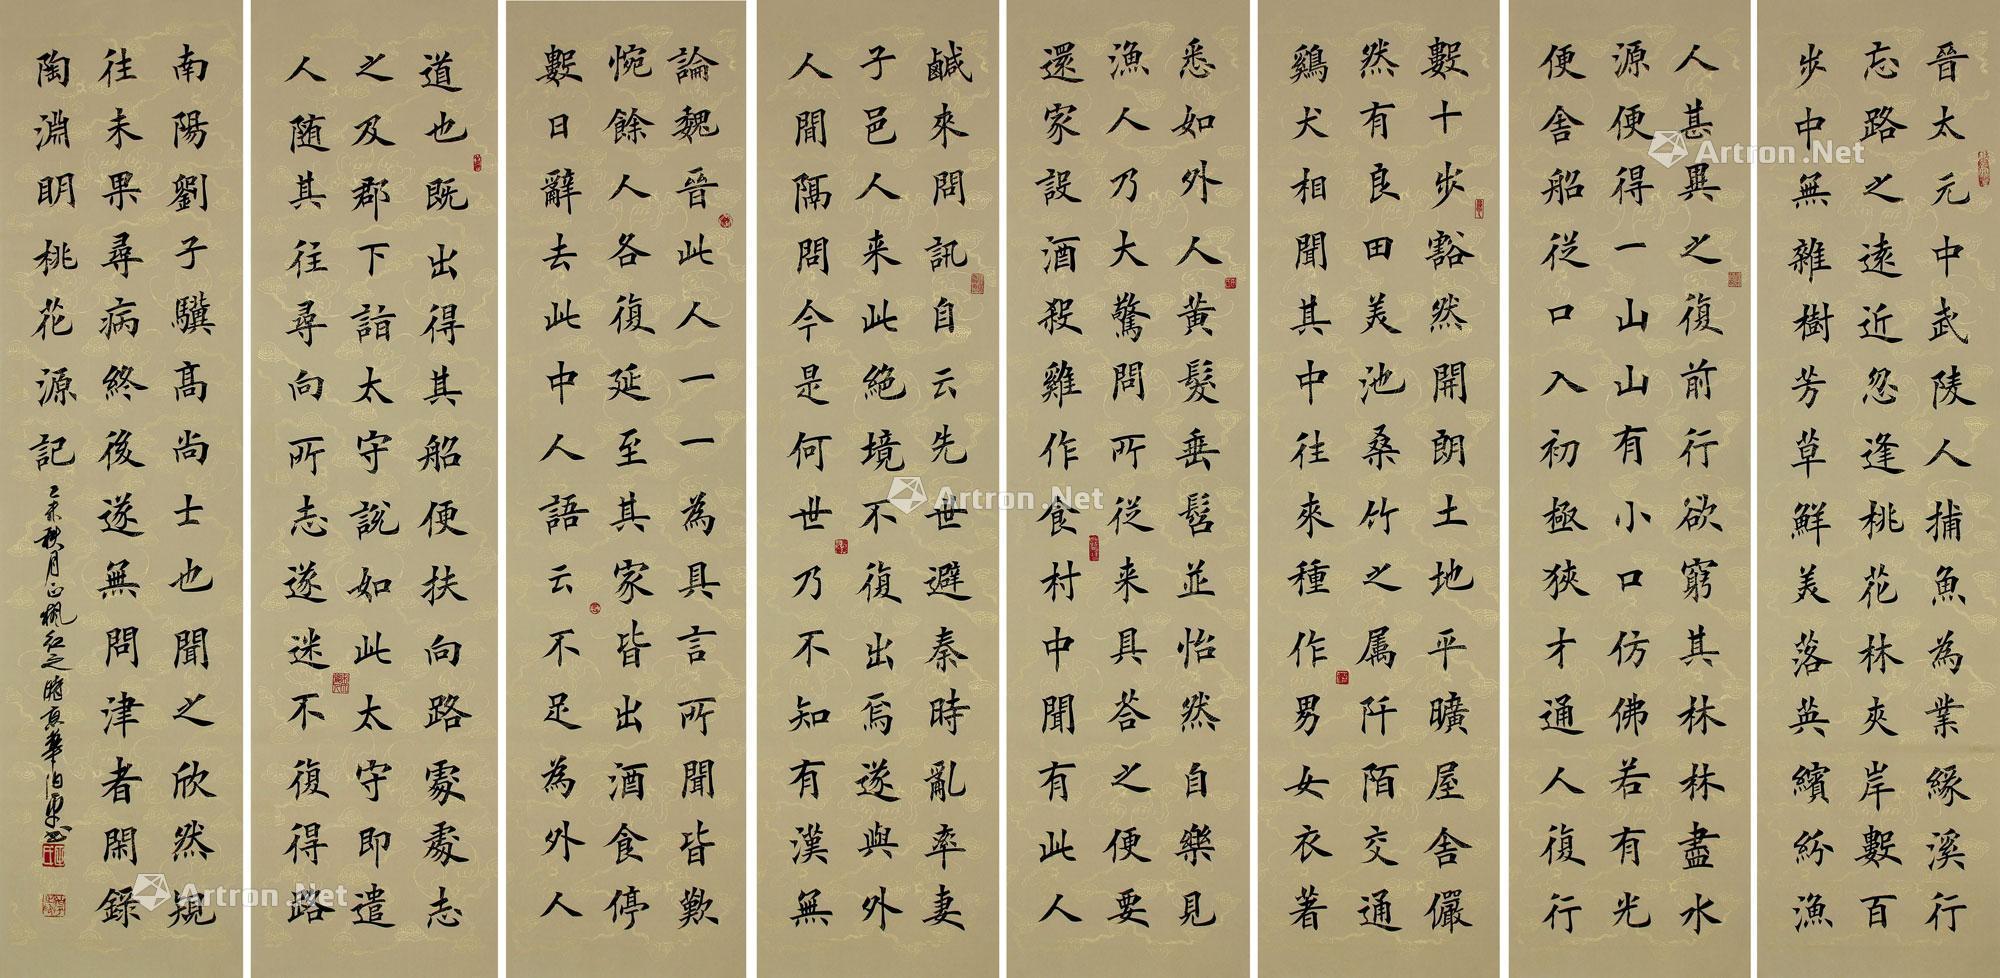 晉太元中武陵人捕魚為業緣溪行
忘路之遠近忽逢桃花林夾岸數百
步中無雜樹芳草鮮美落英繽紛漁
人甚異之復前行欲窮其林林盡水
源便得一山山有小口仿佛若有光
便舍船從口入初極狹才通人復行
數十步豁然開朗土地平曠屋舍儼
然有良田美池桑竹之属阡陌交通
鷄犬相聞其中往來種作男女衣著
悉如外人黃髮垂髫並怡然自樂見
漁人乃大驚問所從来具荅之便要
還家設酒殺雞作食村中聞有此人
鹹來問訊自云先世避秦時亂率妻
子邑人来此絶境不復出焉遂與外
人間隔問今是何世乃不知有漢無
論魏晉此人一一為具言所聞皆歎
惋餘人各復延至其家皆出酒食停
數日辭去此中人語云不足為外人
道也既出得其船便扶向路處處志
之及郡下詣太守說如此太守即遣
人随其往尋向所志遂迷不復得路
南陽劉子驥高尚士也聞之欣然規
往未果尋病終後遂無問津者閑錄
陶淵明桃花源記 乙未秋月正楓紅之時京華伯東書
Artron.Net
Artron.Net
Artron.Net